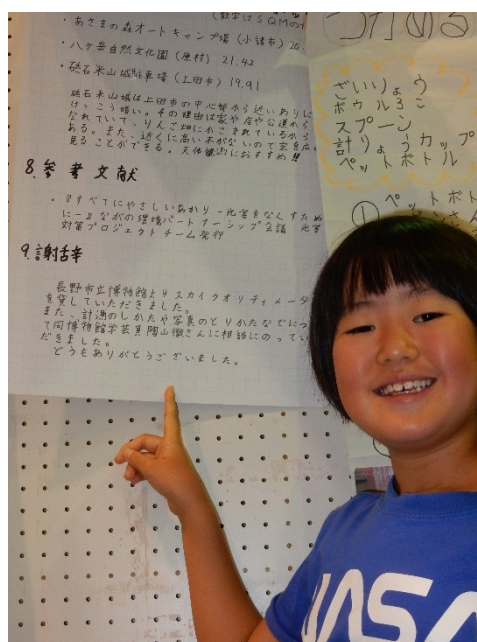 (数字はSQMの
・あさまの森オートキャンプ場(小諸市)20.
・八ヶ岳自然文化園(原村) 21.42
・砥石米山城駐車場(上田市) 19.91
砥石米山城は上田市の中心部から近いわりに
けっこう暗い。その理由は家や店や公道から
なれていて、りんご畑にかこまれているから
ある。また、近くに高い木がないので空を広
見ることができる。天体観測におすすめ!!
8.参考文献
・すべてにやさしいあかり-光害をなくすため
に- ながの環境パートナーシップ会議 光害
対策プロジェクトチーム発行
9.謝辞
長野市立博物館よりスカイクオリティメータ
を貸していただきました。
また、計測のしかたや写真のとりかたなどにつ
て同博物館学芸員陶山徹さんに相談にのってい
だきました。
どうもありがとうございました。
つかめる
ざいりょう
ボウル3こ
スプーン
計りょうカップ
ペットボトル
① ペットボト
NASA